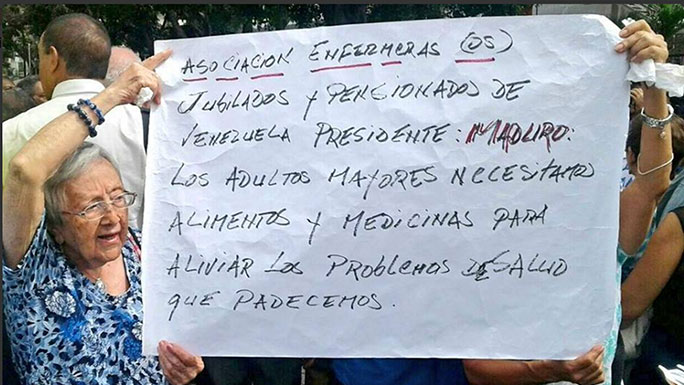 ASOCIACION ENFERMERAS (OS)
JUBILADOS Y PENCIONADOS DE
VENEZUELA PRESIDENTE: MADURO:
LOS ADULTOS MAYORES NECESITAMOS
ALIMENTOS Y MEDICINAS PARA
ALIVIAR LOS PROBLEMOS DE SALUD
QUE PADECEMOS.